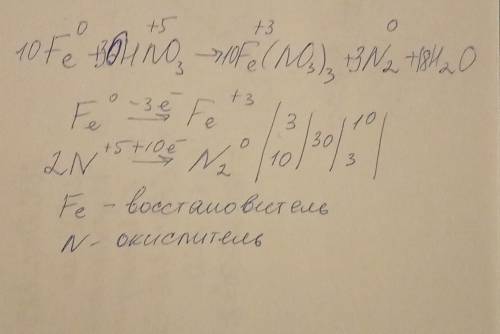 10Fe⁰ + 36HN⁺⁵O₃ → 10Fe⁺³(NO₃)₃ + 3N₂⁰ + 18H₂O
Fe⁰ −3e⁻ → Fe⁺³ | 3 | 30 | 10 |
2N⁺⁵ +10e⁻ → N₂⁰ | 10 | | 3 |
Fe - восстановитель
N - окислитель